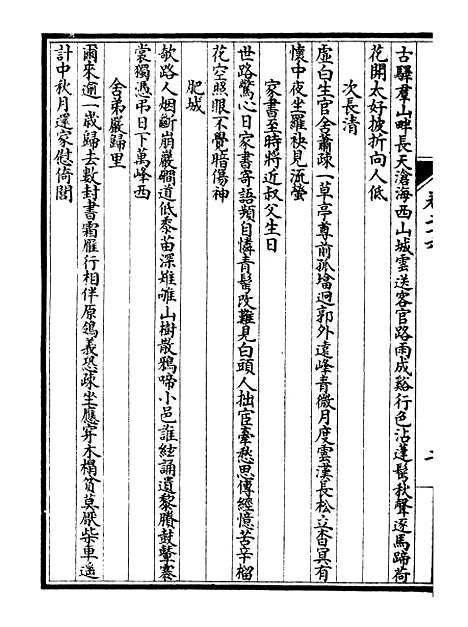 古驛羣山畔長天滄海西山城雲送客官路雨成谿行色沾蓬鬢秋聲逐馬蹄荷
花開太好披折向人低
次長清
虛白生官舍蕭疎一草亭尊前孤塔迥郭外遠峰青微月度雲漢長松立杳冥有
懷中夜坐羅袂見流螢
家書至時將近叔父生日
世路驚心日家書寄語頻自憐青鬢改難見白頭人拙宦牽愁思傳經憶苦辛榴
花空照眼不覺暗傷神
肥城
欹路人烟斷崩巖磵道低黍苗深雉唯山樹散鴉啼小邑誰絃誦遺黎賸鼓鼙褰
裳獨憑弔日下萬峰西
舍弟嚴歸里
爾來逾一歲歸去數封書霜雁行相伴原鴒義恐疎坐應穿木榻貧莫厭柴車遥
計中秋月還家慰倚閭